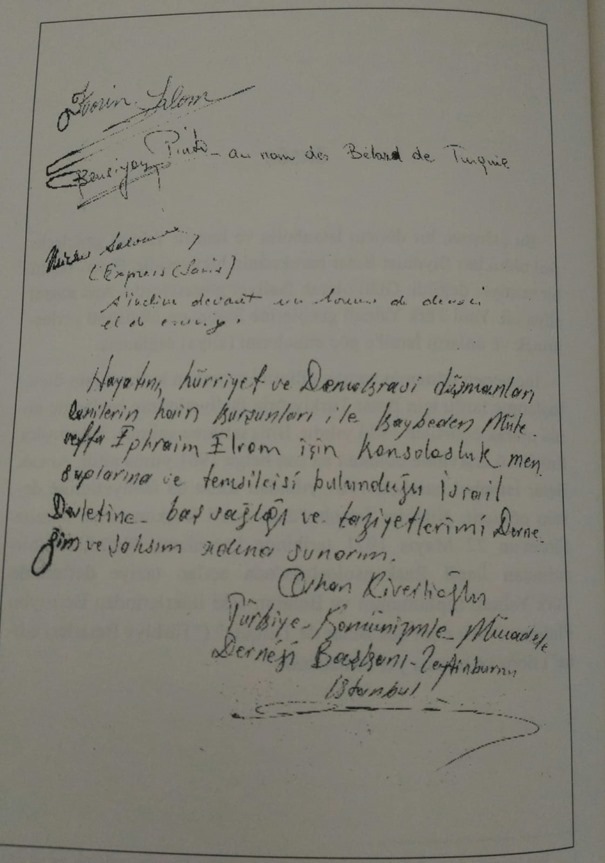 Salom
Bensiyon Pinto - au nom des Bétard de Turquie
Salomie,
[Express (Paris)]
s'incline devant un homme de devoir
et de courage.
Hayatını, hürriyet ve Demokrasi düşmanları
canilerin hain kurşunları ile kaybeden Müte-
veffa Ephraim Elrom için konsolosluk men
suplarına ve temsilcisi bulunduğu İsrail
Devletine baş sağlığı ve taziyetlerimi Derne
ğim ve şahsım adına sunarım.
Orhan
Türkiye - Komünizmle - Mücadele
Derneği Başkanı - Zeytinburnu
İstanbul